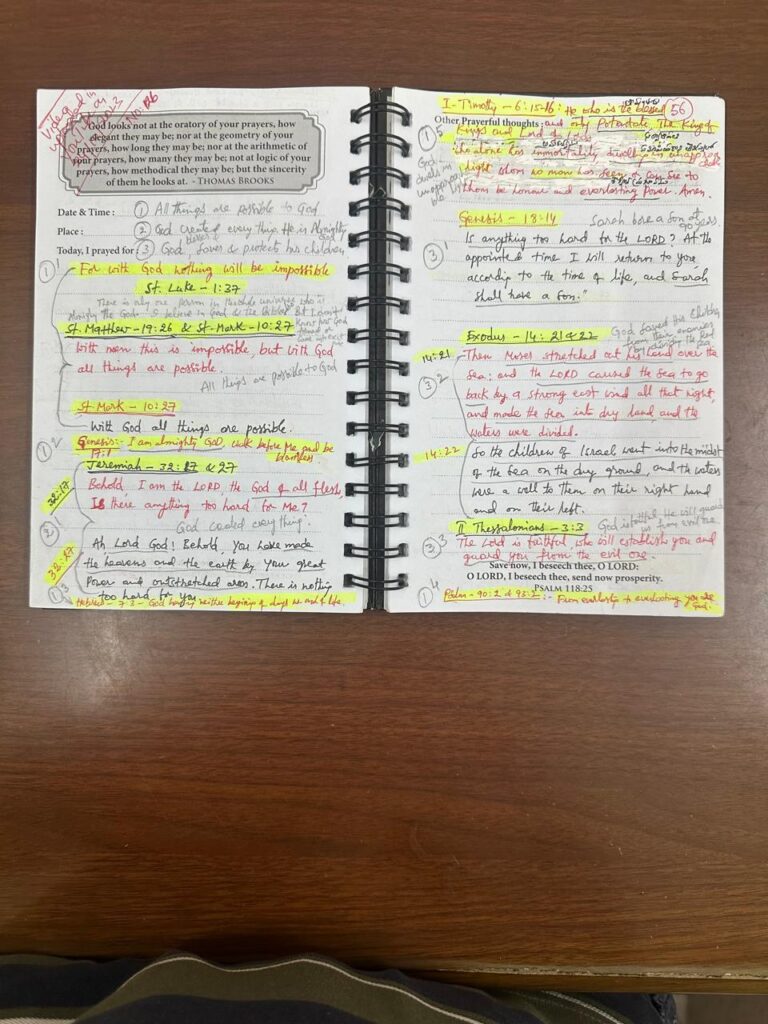 Video
God looks not at the oratory of your prayers, how
elegant they may be; nor at the geometry of your
prayers, how long they may be; nor at the arithmetic of
your prayers, how many they may be; not at logic of your
prayers, how methodical they may be; but the sincerity
of them he looks at. - THOMAS BROOKS
Date & Time : ① All things are possible to God
Place : ② God created every thing. He is Almighty God
Today, I prayed for ③ God, blesses, loves & protects his children
① For with God nothing will be impossible
St. Luke - 1:37
There is only one person in the whole universe who is
Almighty God
St. Matthew - 19:26 & St. Mark - 10:27
With men this is impossible, but with God
all things are possible.
All things are possible to God
St. Mark - 10:27
With God all things are possible.
①2 Genesis:- I am almighty God, walk before Me and be
17:1 blameless
Jeremiah - 32:17 & 27
Behold, I am the LORD, the God of all flesh,
Is there anything too hard for Me?
God created everything.
②1 Ah Lord God! Behold, You have made
32:17 the heavens and the earth by Your great
Power and outstretched arm. There is nothing
too hard for you
①3 Hebrew - 7:3 - God having neither begining of days nor end of life.
I - Timothy - 6:15-16: He who is the blessed 56
Other Prayerful thoughts : and only Potentate, The King of
①5 Kings and Lord of Lords
who alone has immortality, dwelling in unapproachable
light whom no man has seen or can see to
whom be honour and everlasting Power. Amen.
Genesis - 18:14 Sarah bore a son at 90 years.
③1 Is anything too hard for the LORD? At the
appointed time I will return to you,
according to the time of life, and Sarah
shall have a son."
Exodus - 14:21 & 22 God saved His children
from their enemies
14:21 Then Moses stretched out his hand over the
③2 Sea; and the LORD caused the Sea to go
back by a strong east wind all that night,
and made the sea into dry land and the
waters were divided.
14:22 So the children of Israel went into the midst
of the Sea on the dry ground, and the waters
were a wall to them on their right hand
and on their left.
II Thessalonians - 3:3 God is faithful He will guard
us from evil one
③3 The Lord is faithful who will establish you and
guard you from the evil one.
Save now, I beseech thee, O LORD:
O LORD, I beseech thee, send now prosperity.
PSALM 118:25
①4 Psalm - 90:2 & 93:2 :- From everlasting to everlasting you are
God.